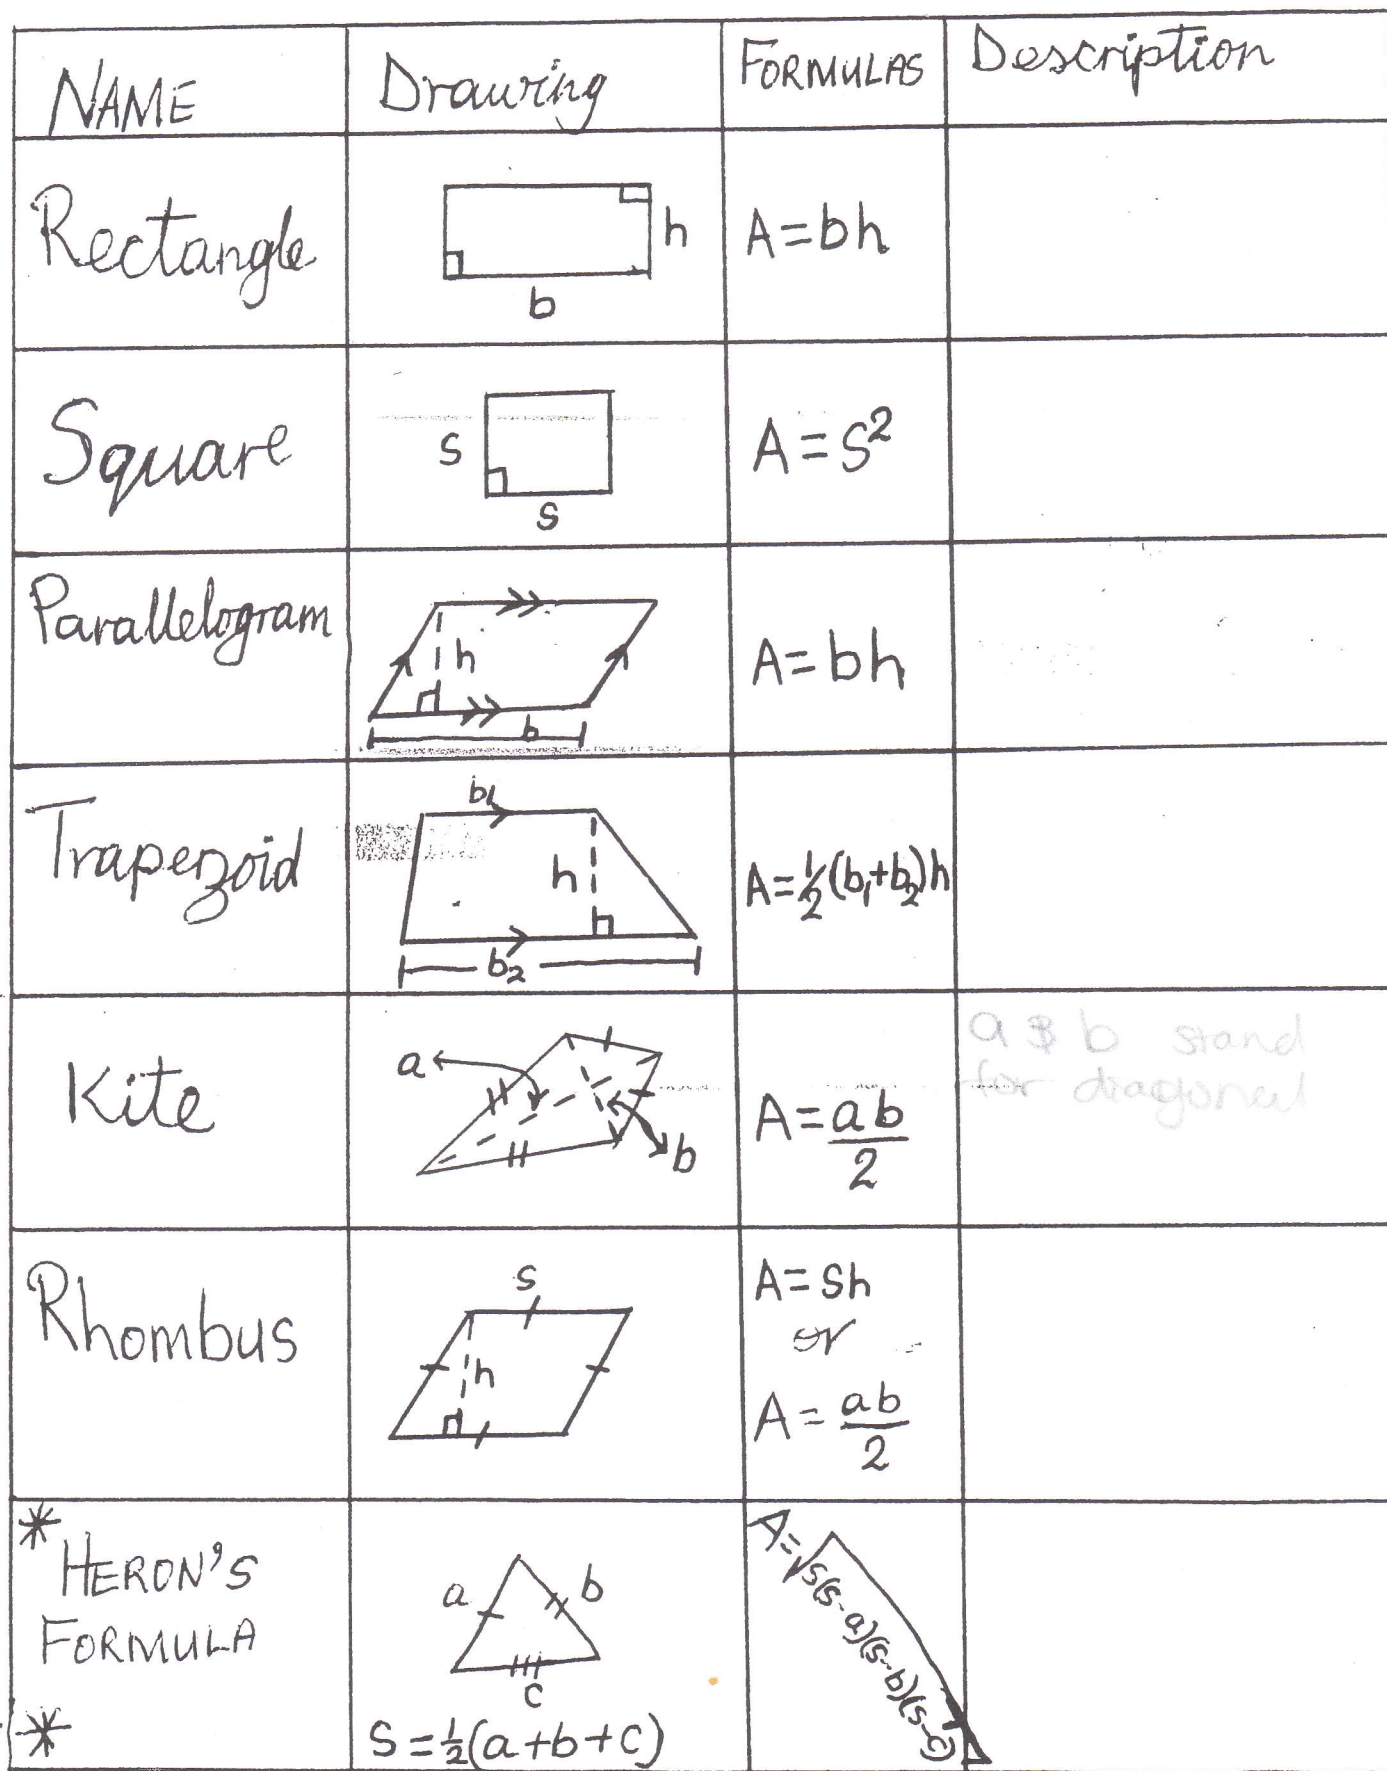 NAME Drawing FORMULAS Description
Rectangle h A=bh
b
Square s A=s²
s
Parallelogram h A=bh
b
Trapezoid b₁
h A=½(b₁+b₂)h
b₂
Kite a A=ab/2 a & b stand
b for diagonal
Rhombus s A=sh
h or
A=ab/2
* HERON'S a b A=√s(s-a)(s-b)(s-c)
FORMULA c
* S=½(a+b+c)